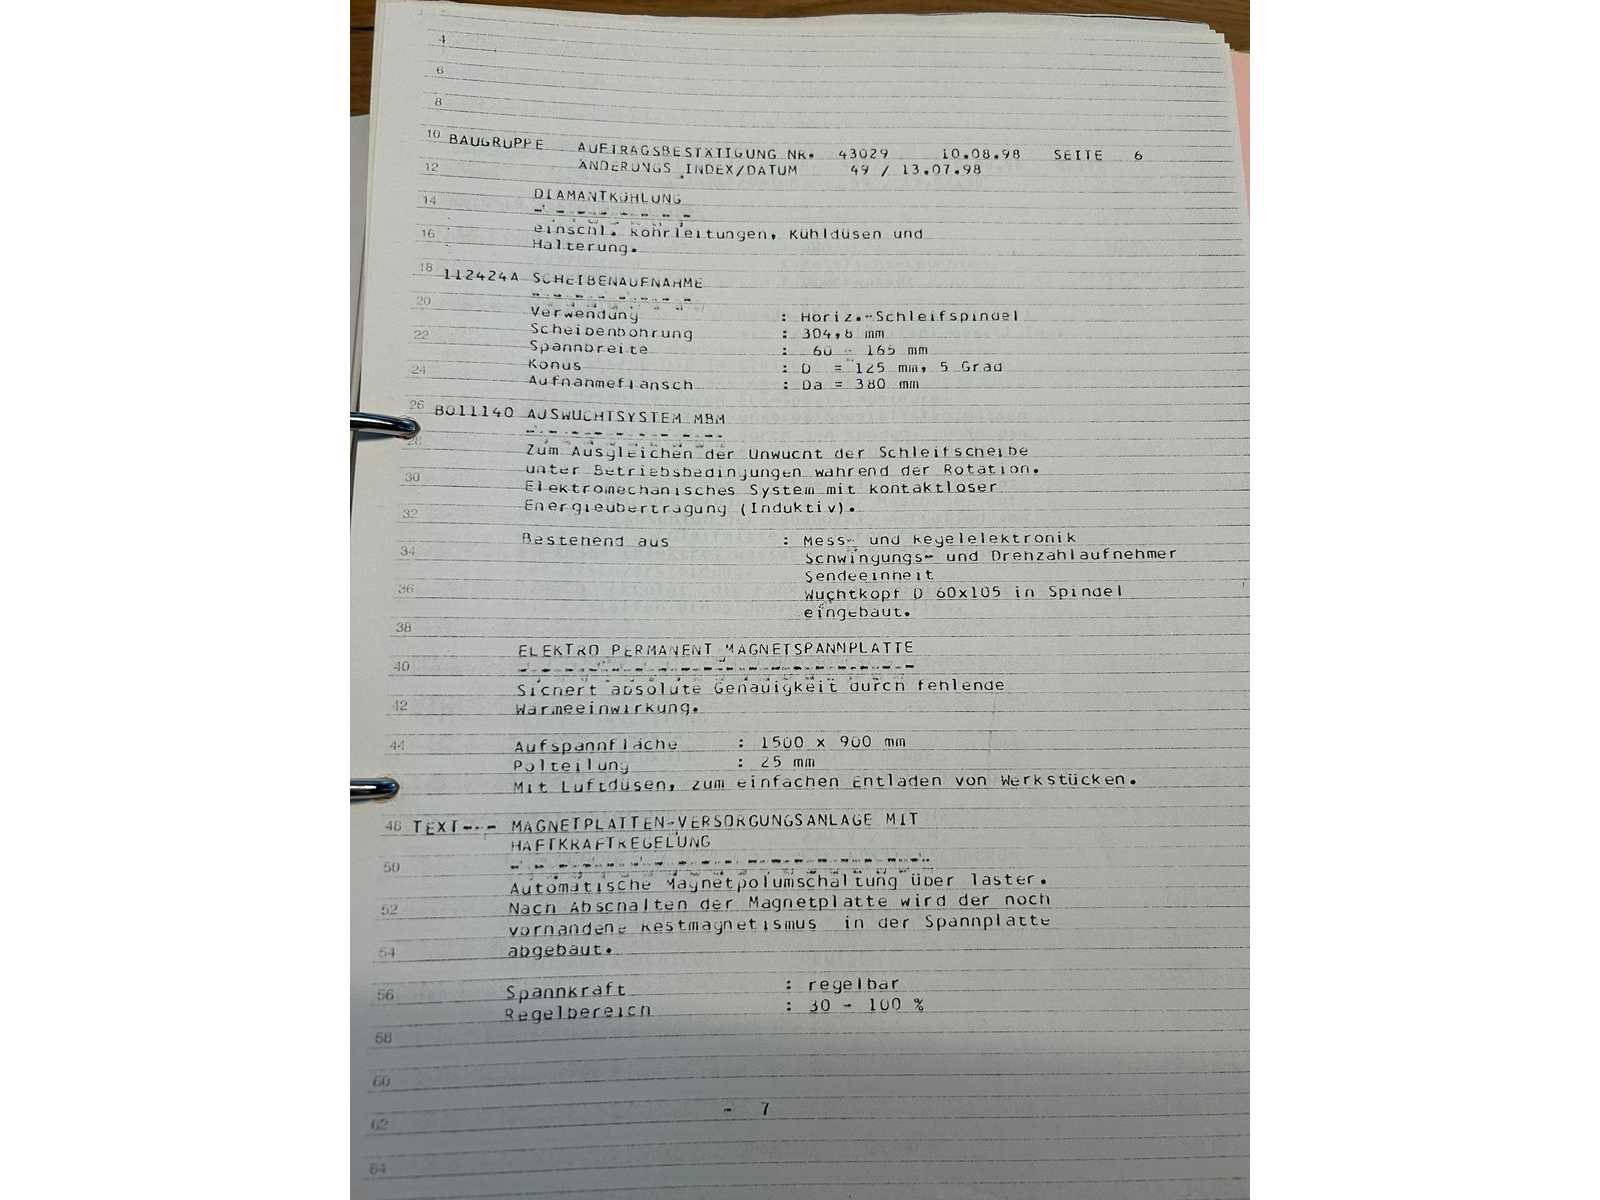 4
6
8
10 BAUGRUPPE AUFTRAGSBESTÄTIGUNG NR. 43029 10.08.98 SEITE 6
12 ÄNDERUNGS INDEX/DATUM 49 / 13.07.98
14 DIAMANTKÜHLUNG
einschl. Rohrleitungen, Kühldüsen und
16 Halterung.
18 112424A SCHEIBENAUFNAHME
20 Verwendung : Horiz.-Schleifspindel
22 Scheibenbohrung : 304,8 mm
Spannbreite : 60 - 165 mm
24 Konus : D = 125 mm, 5 Grad
Aufnahmeflansch : Da = 380 mm
26 8011140 AUSWUCHTSYSTEM MBM
28
Zum Ausgleichen der Unwucht der Schleifscheibe
30 unter Betriebsbedingungen während der Rotation.
Elektromechanisches System mit kontaktloser
32 Energieübertragung (Induktiv).
34 Bestehend aus : Mess- und Regelelektronik
Schwingungs- und Drehzahlaufnehmer
Sendeeinheit
36 Wuchtkopf D 60x105 in Spindel
eingebaut.
38
ELEKTRO PERMANENT MAGNETSPANNPLATTE
40
Sichert absolute Genauigkeit durch fehlende
42 Wärmeeinwirkung.
44 Aufspannfläche : 1500 x 900 mm
Polteilung : 25 mm
Mit Luftdüsen, zum einfachen Entladen von Werkstücken.
48 TEXT--- MAGNETPLATTEN-VERSORGUNGSANLAGE MIT
HAFTKRAFTREGELUNG
50
Automatische Magnetpolumschaltung über Taster.
52 Nach Abschalten der Magnetplatte wird der noch
vorhandene Restmagnetismus in der Spannplatte
54 abgebaut.
56 Spannkraft : regelbar
Regelbereich : 30 - 100 %
58
60
- 7
62
64